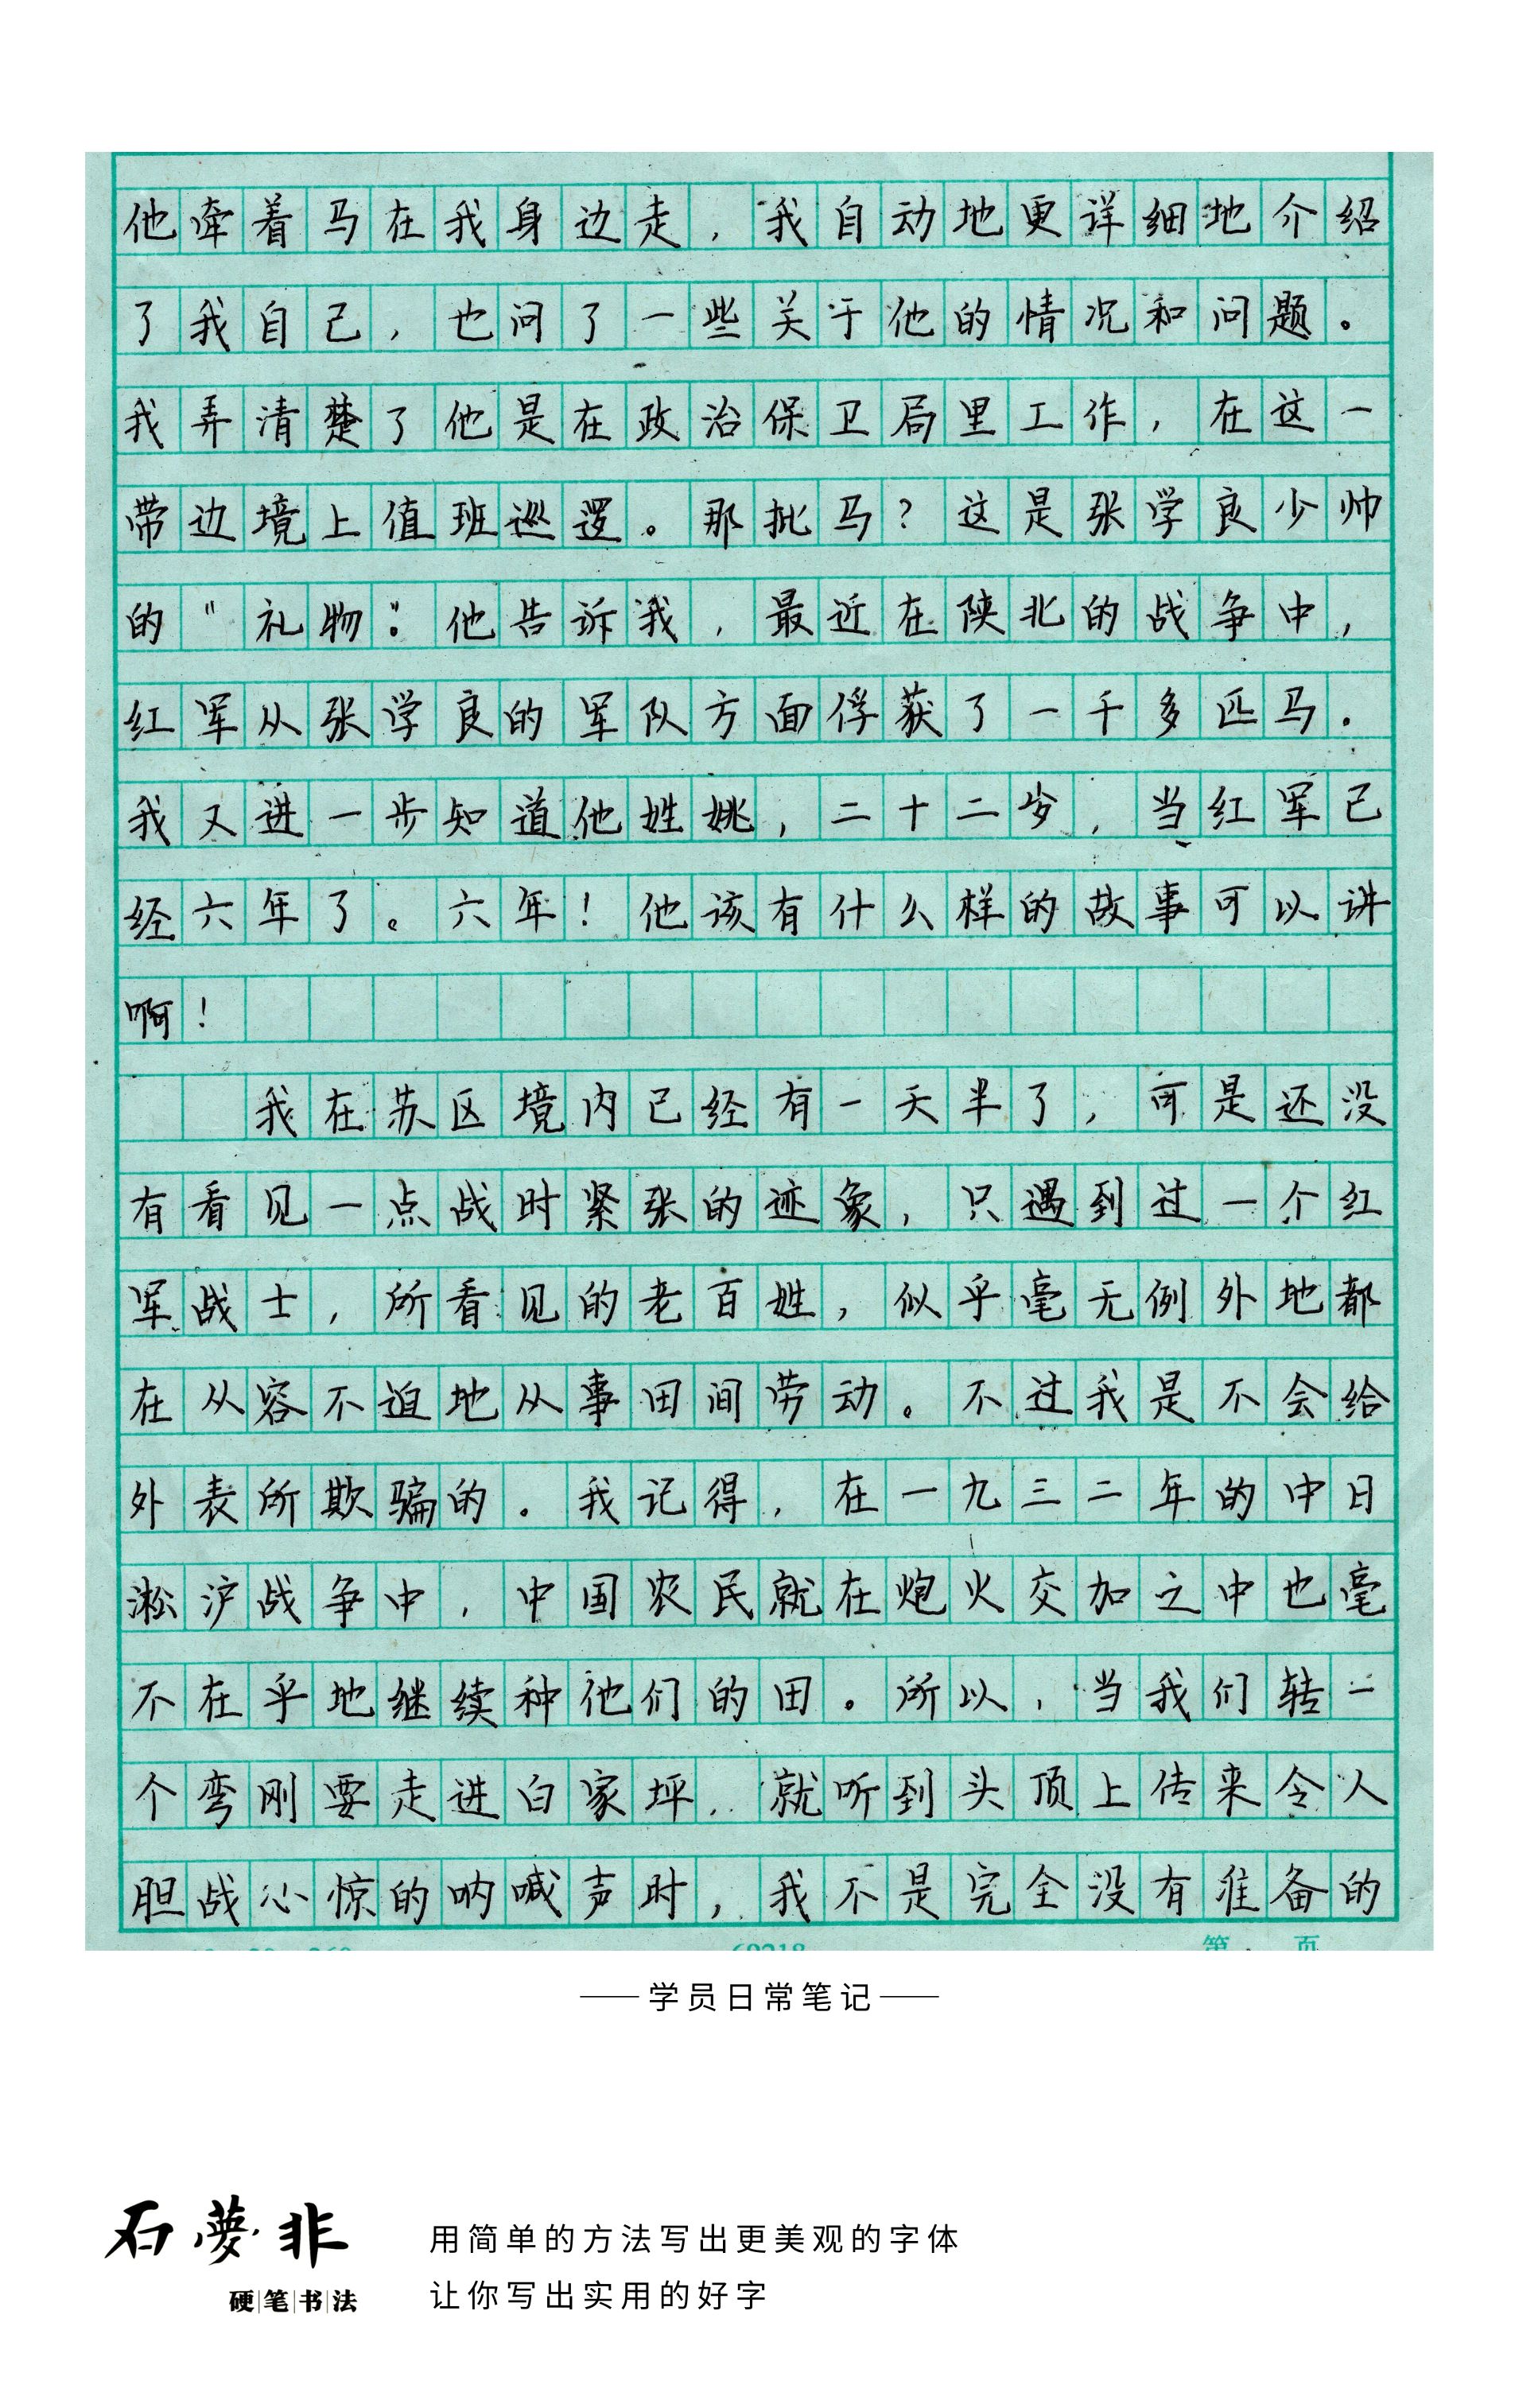 他牵着马在我身边走，我自动地更详细地介绍
了我自己，也问了一些关于他的情况和问题。
我弄清楚了他是在政治保卫局里工作，在这一
带边境上值班巡逻。那批马？这是张学良少帅
的“礼物”。他告诉我，最近在陕北的战争中，
红军从张学良的军队方面俘获了一千多匹马.
我又进一步知道他姓姚，二十二岁，当红军已
经六年了。六年！他该有什么样的故事可以讲
啊！
我在苏区境内已经有一天半了，可是还没
有看见一点战时紧张的迹象，只遇到过一个红
军战士，所看见的老百姓，似乎毫无例外地都
在从容不迫地从事田间劳动。不过我是不会给
外表所欺骗的.我记得，在一九三二年的中日
淞沪战争中，中国农民就在炮火交加之中也毫
不在乎地继续种他们的田。所以，当我们转一
个弯刚要走进白家坪，就听到头顶上传来令人
胆战心惊的呐喊声时，我不是完全没有准备的
第 页
——学员日常笔记——
石夢非
硬笔书法
用简单的方法写出更美观的字体
让你写出实用的好字